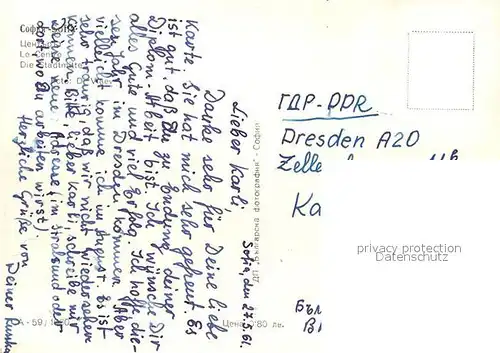 Sofia, den 27.5.61.
Lieber Karli,
Danke sehr für Deine liebe
Karte. Sie hat mich sehr gefreut. Es
ist gut, daß Du zu Endung deiner
Diplom-Arbeit bist. Ich wünsche Dir
alles Gute und viel Erfolg. Ich hoffe die-
ses Jahr in Dresden kommen. Aber
vielleicht komme ich im August. Es ist
sehr traurig, daß wir nicht wiedersehen
können. Bitte, lieber Karli, schreibe mir
deine neue Adresse (im Stralsund oder
dort wo Du arbeiten wirst)
Herzliche Grüße von
Deiner
ГДР - DDR
Dresden A20
Zelle
Ka
Бъл
privacy protection
Datenschutz
ДП „Българска фотография" - София
Цена 0·80 лв.
Die Stadtmitte